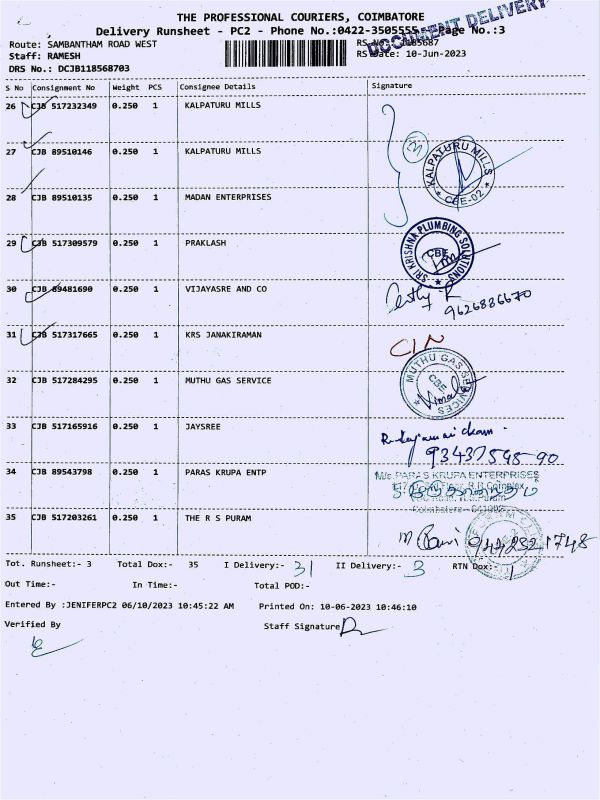 THE PROFESSIONAL COURIERS, COIMBATORE
DOCUMENT DELIVERY
Delivery Runsheet - PC2 - Phone No.:0422-3505555 Page No.:3
Route: SAMBANTHAM ROAD WEST
Staff: RAMESH RS Date: 10-Jun-2023
DRS No.: DCJB118568703
S No Consignment No Weight PCS Consignee Details Signature
26 CJB 517232349 0.250 1 KALPATURU MILLS
27 CJB 89510146 0.250 1 KALPATURU MILLS
3
KALPATURU MILLS
CBE-02
28 CJB 89510135 0.250 1 MADAN ENTERPRISES
29 CJB 517309579 0.250 1 PRAKLASH
SRI KRISHNA PLUMBING SOLUTIONS
CBE
30 CJB 89481690 0.250 1 VIJAYASRE AND CO
9626886670
31 CJB 517317665 0.250 1 KRS JANAKIRAMAN
32 CJB 517284295 0.250 1 MUTHU GAS SERVICE
MUTHU GAS SERVICES
CBE
33 CJB 517165916 0.250 1 JAYSREE
34 CJB 89543798 0.250 1 PARAS KRUPA ENTP
PARAS KRUPA ENTERPRISES
35 CJB 517203261 0.250 1 THE R S PURAM
Tot. Runsheet:- 3 Total Dox:- 35 I Delivery:- 31 II Delivery:- 3 RTN Dox:- 1
Out Time:- In Time:- Total POD:-
Entered By :JENIFERPC2 06/10/2023 10:45:22 AM Printed On: 10-06-2023 10:46:10
Verified By Staff Signature